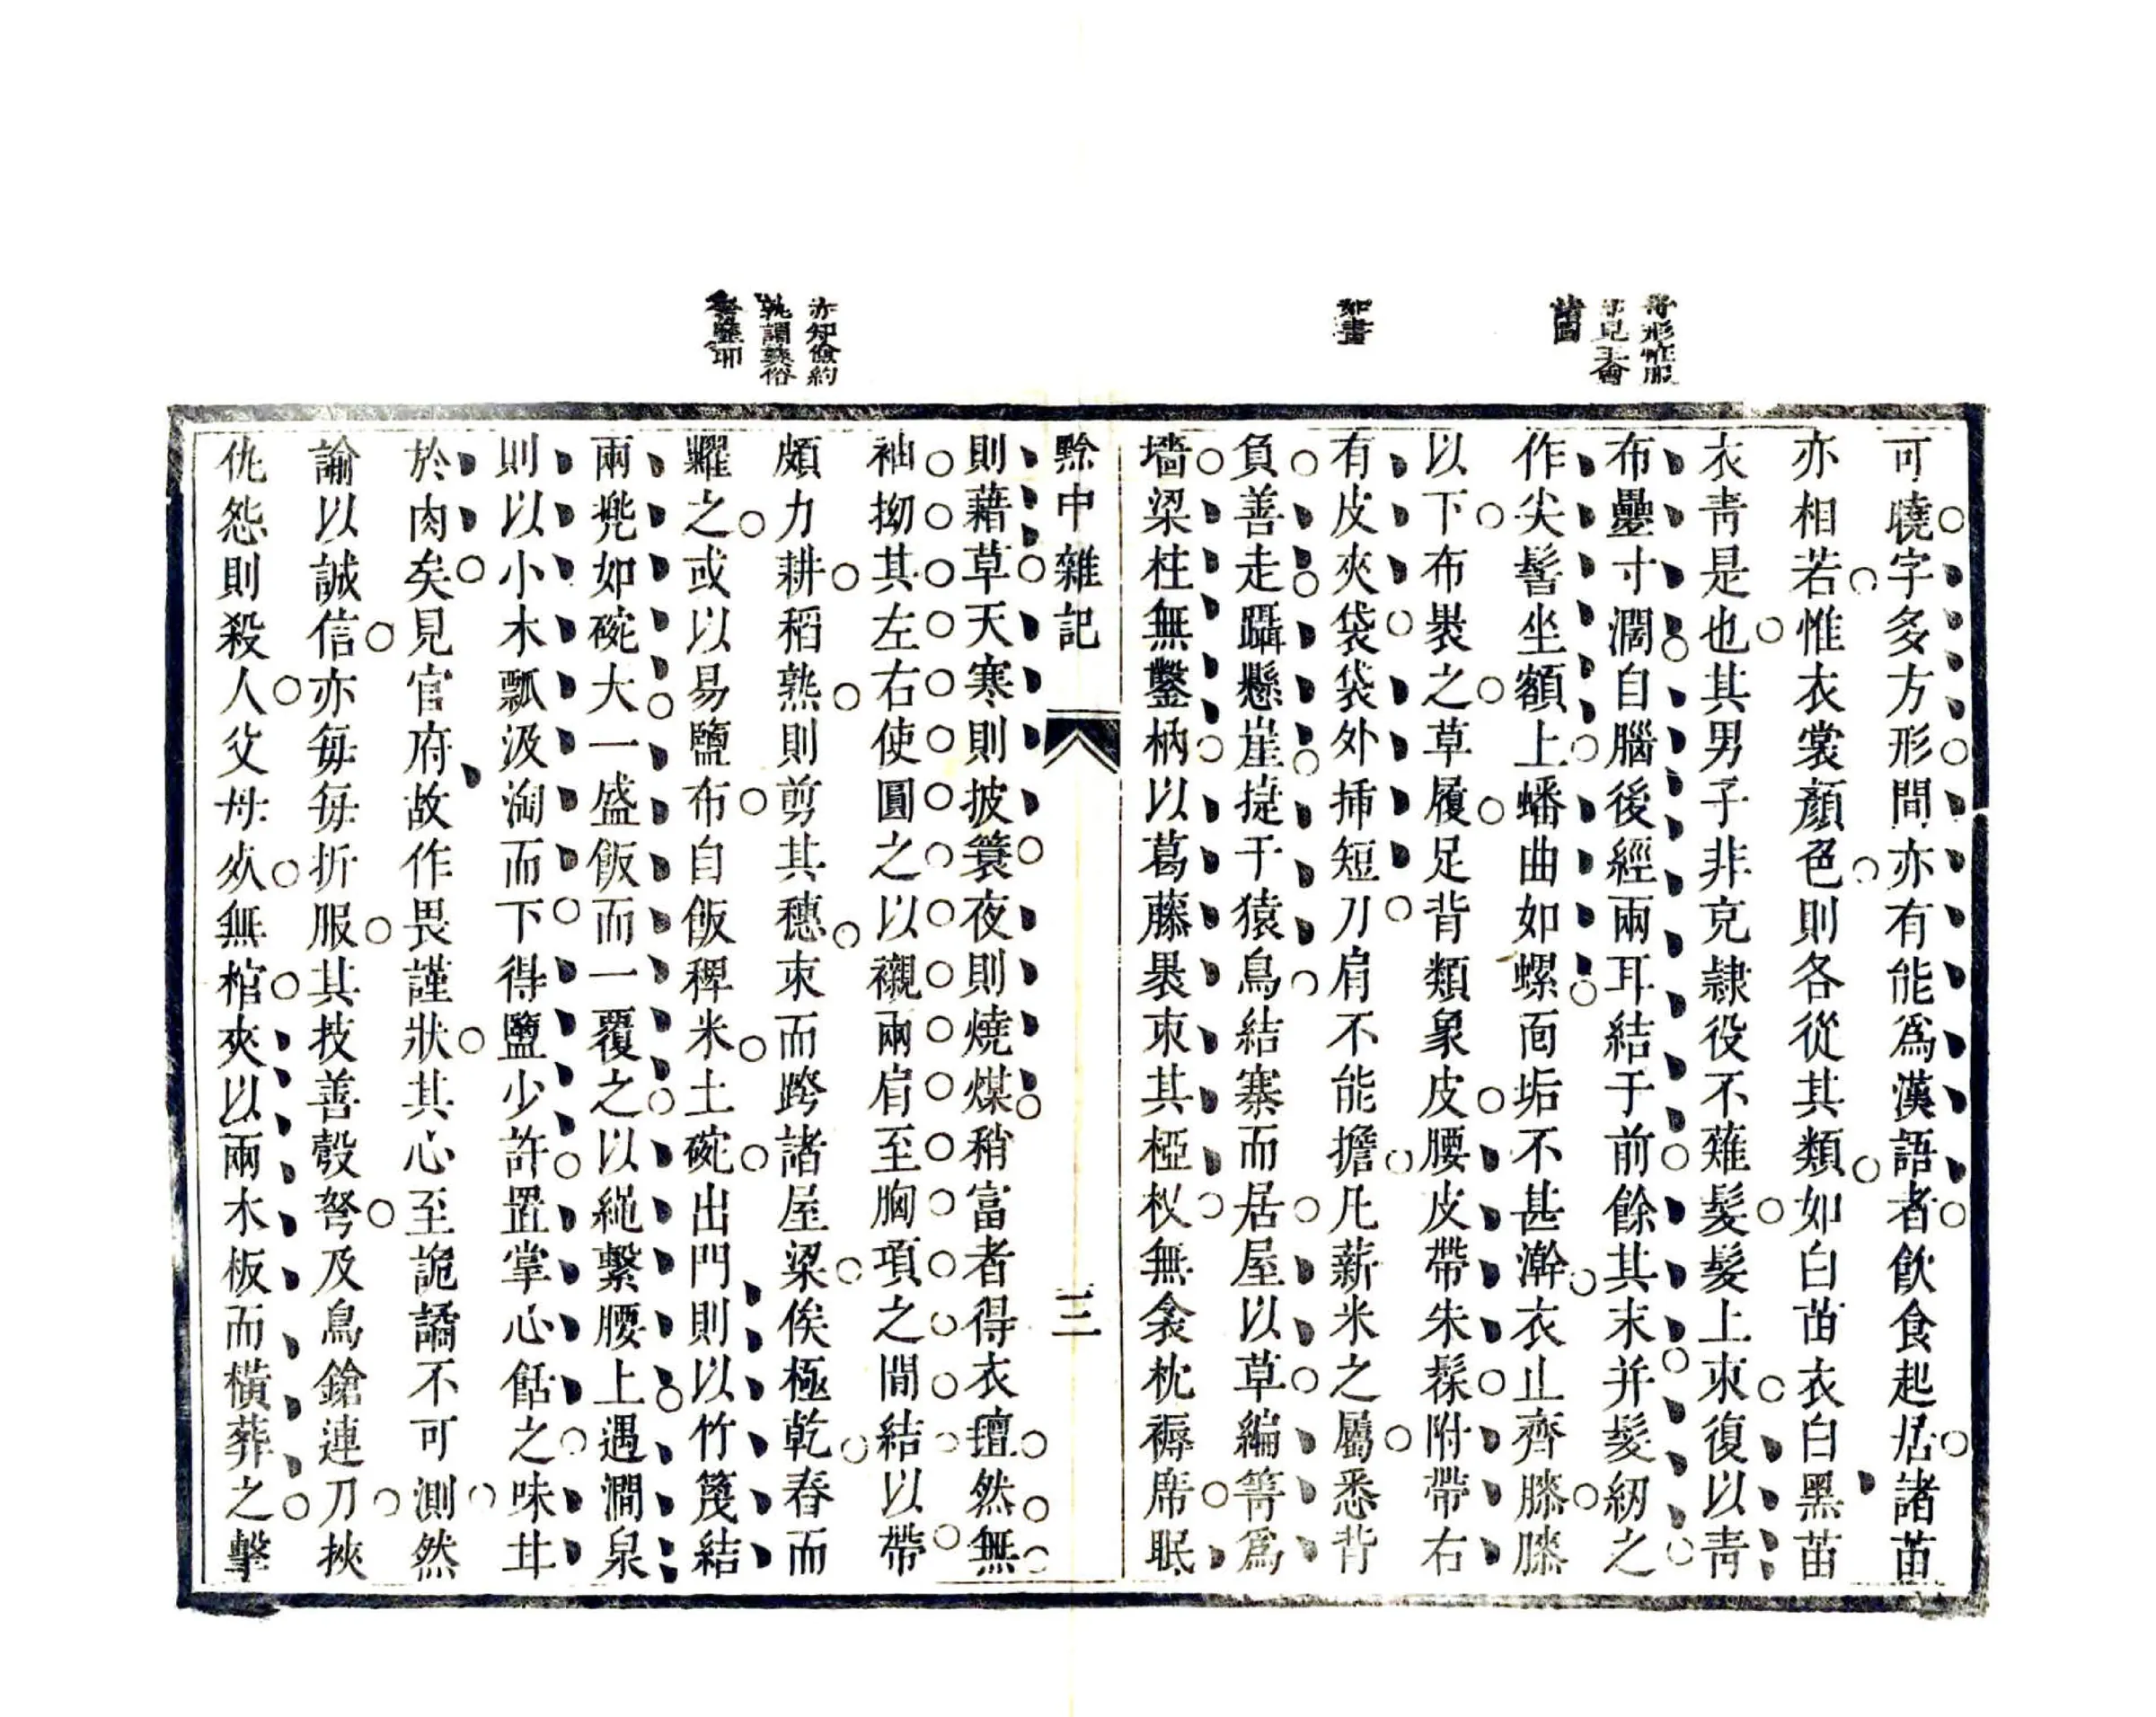 可曉字多方形間亦有能爲漢語者飲食起居諸苗
亦相若惟衣裳顏色則各從其類如白苗衣白黑苗
衣靑是也其男子非充隸役不薙髮髮上束復以靑
布疊寸濶自腦後經兩耳結于前餘其末并髮紉之
作尖髻坐額上蟠曲如螺面垢不甚澣衣止齊膝膝
以下布褁之草履足背類象皮腰皮帶朱髹附帶右
有皮夾袋袋外揷短刀肩不能擔凡薪米之屬悉背
負善走躡懸崖捷于猿鳥結寨而居屋以草編箐爲
墻梁柱無鑿枘以葛藤褁束其椏杈無衾枕褥席眠
黔中雜記
三
則藉草天寒則披簑夜則燒煤稍富者得衣㲲然無
袖拗其左右使圓之以襯兩肩至胸項之間結以帶
頗力耕稻熟則剪其穗束而跨諸屋梁俟極乾舂而
糶之或以易鹽布自飯稗米土碗出門則以竹篾結
兩兠如碗大一盛飯而一覆之以繩繫腰上遇澗泉
則以小木瓢汲淘而下得鹽少許置掌心餂之味甘
於肉矣見官府故作畏謹狀其心至詭譎不可測然
諭以誠信亦每每折服其技善彀弩及鳥鎗連刀挾
仇怨則殺人父母死無棺夾以兩木板而橫葬之擊
如畫
亦知儉約
孰謂蠻俗